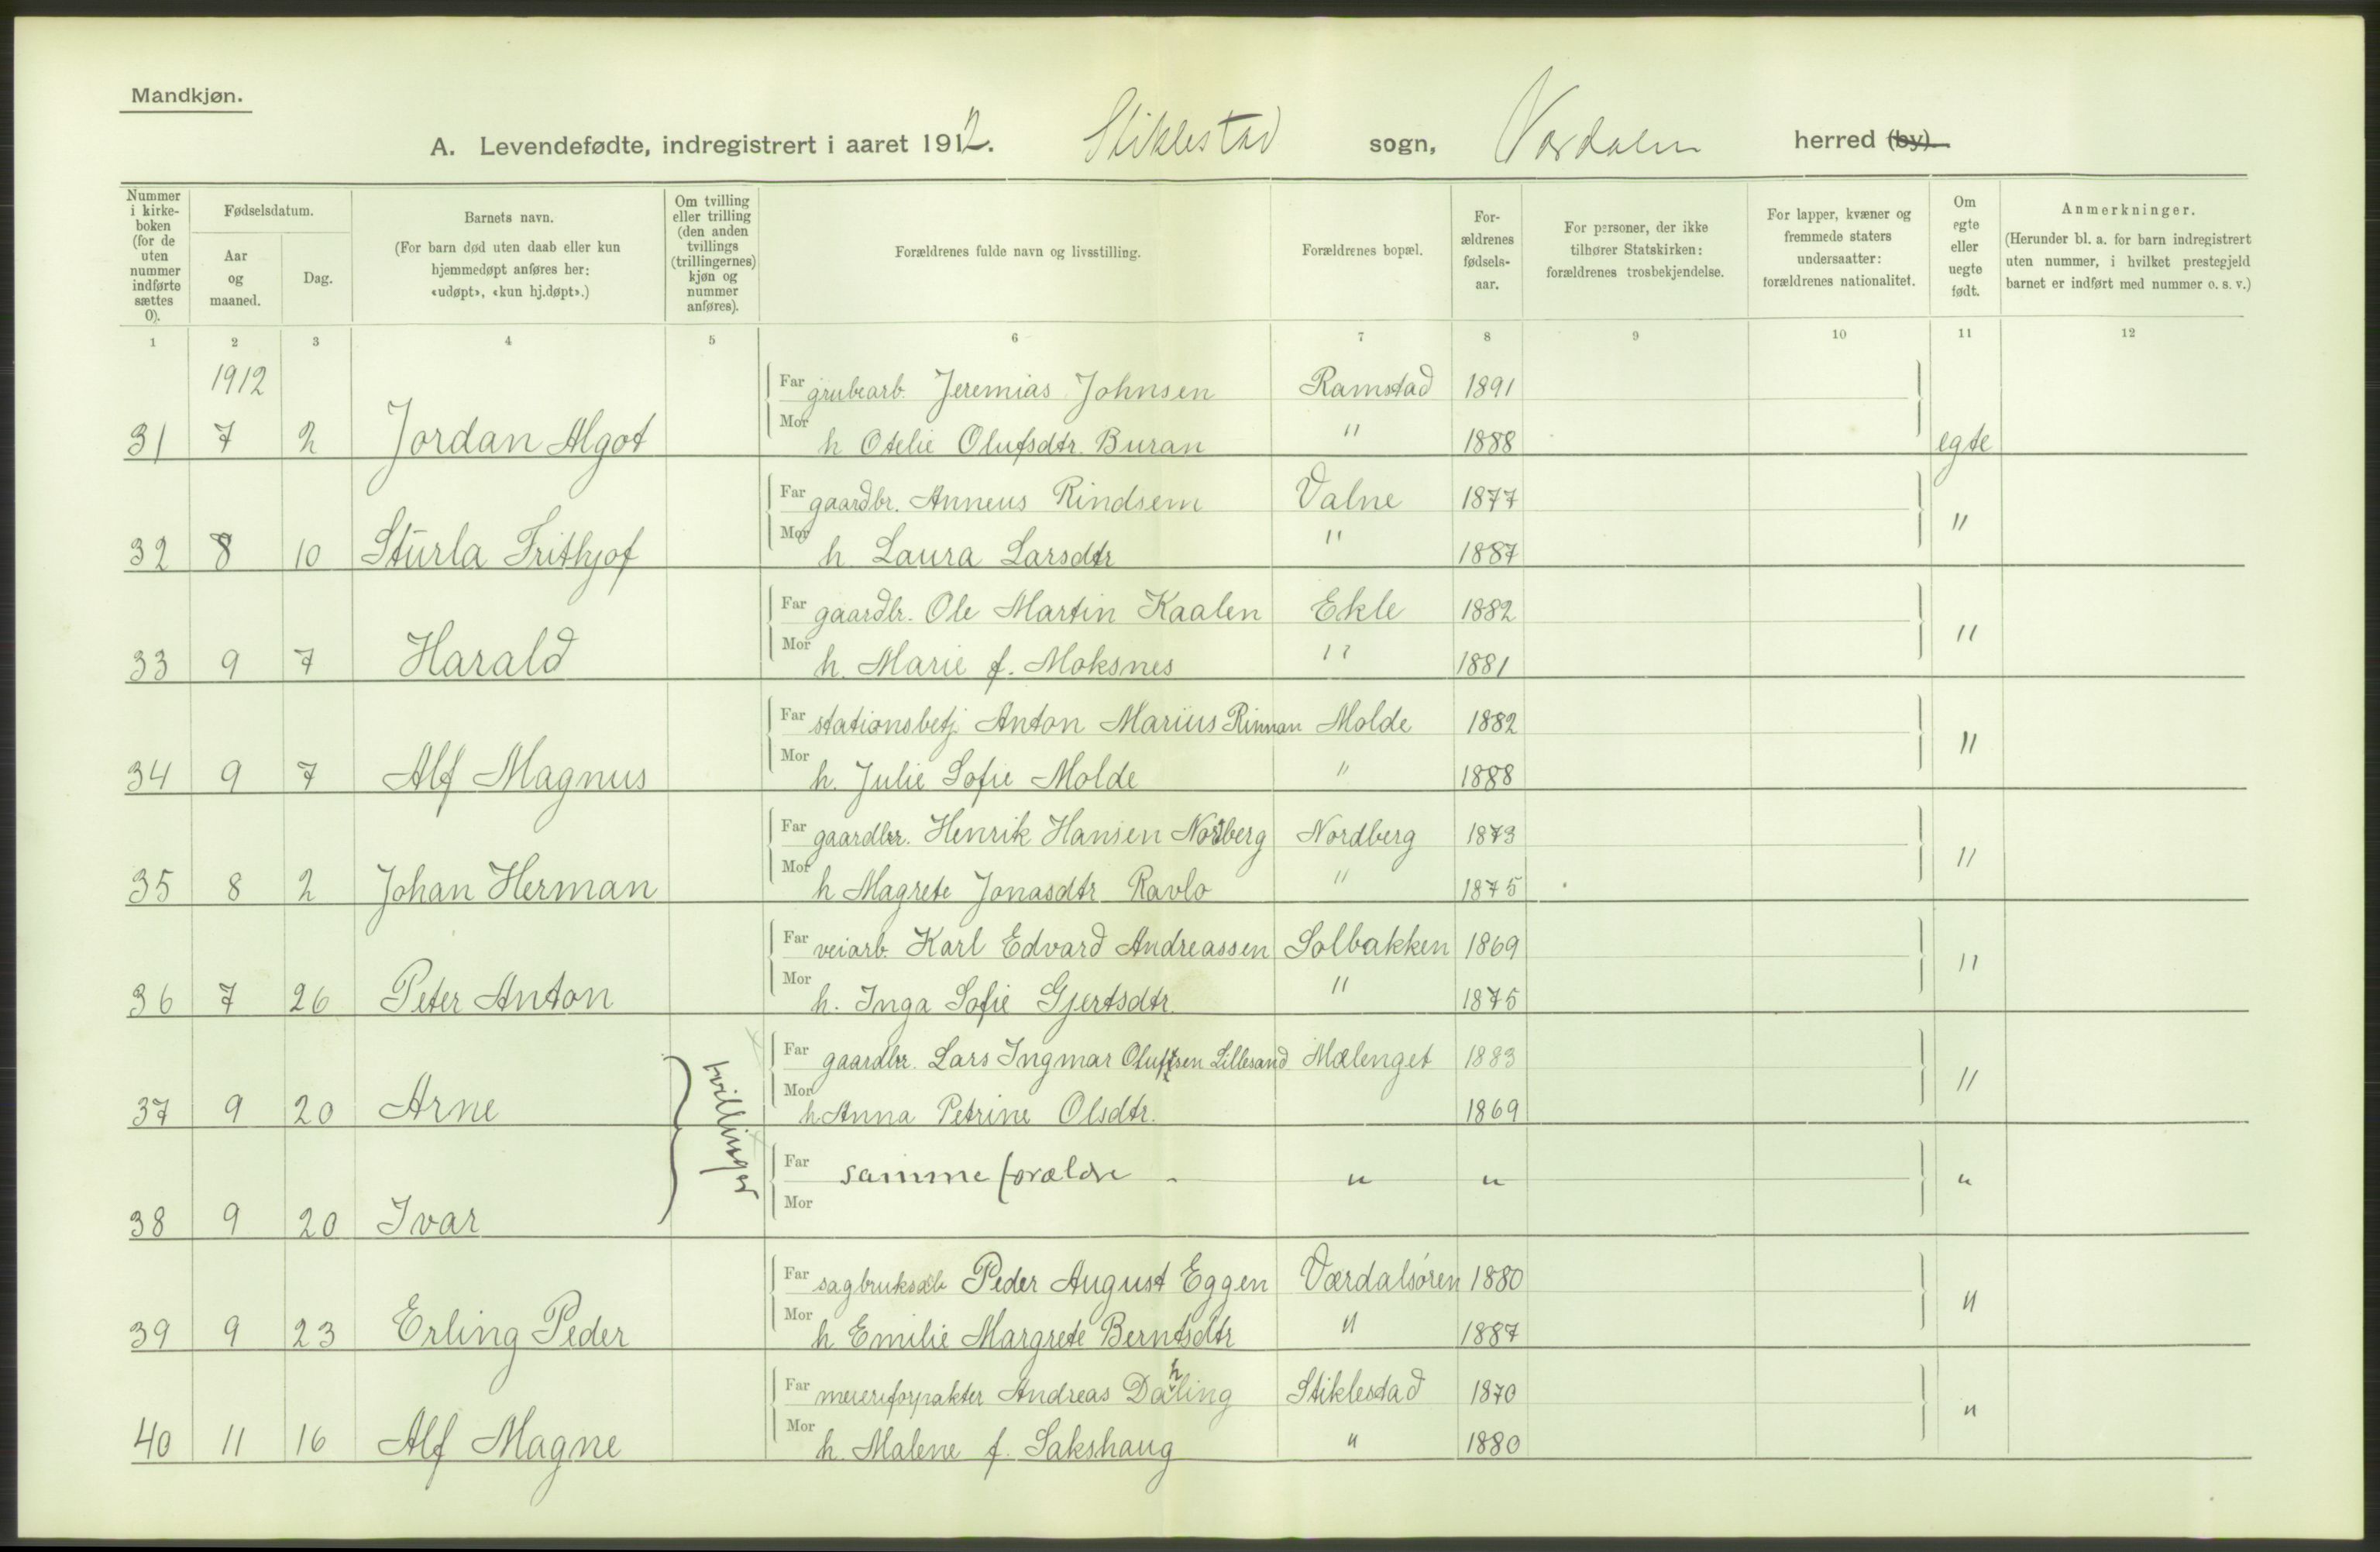 Mandkjøn.
A. Levendefødte, indregistrert i aaret 1912. Stiklestad sogn, Værdalen herred (by)
Nummer i kirkeboken (for de uten nummer indførte sættes 0).
Fødselsdatum.
Aar og maaned.
Dag.
Barnets navn.
(For barn død uten daab eller kun hjemmedøpt anføres her: «udøpt», «kun hj.døpt».)
Om tvilling eller trilling (den anden tvillings (trillingernes) kjøn og nummer anføres).
Forældrenes fulde navn og livsstilling.
Forældrenes bopæl.
For-ældrenes fødsels-aar.
For personer, der ikke tilhører Statskirken: forældrenes trosbekjendelse.
For lapper, kvæner og fremmede staters undersaatter: forældrenes nationalitet.
Om egte eller uegte født.
Anmerkninger.
(Herunder bl. a. for barn indregistrert uten nummer, i hvilket prestegjeld barnet er indført med nummer o. s. v.)
1 2 3 4 5 6 7 8 9 10 11 12
1912
Far grubearb. Jeremias Johnsen Ramstad 1891
31 7 2 Jordan Algot Mor h Otelie Olufsdtr. Buran " 1888 egte
Far gaardbr. Anneus Rindsem Valne 1877
32 8 10 Sturla Frithjof Mor h. Laura Larsdtr " 1887 "
Far gaardbr. Ole Martin Kaalen Ekle 1882
33 9 7 Harald Mor h. Marie f. Moksnes " 1881 "
Far stationsbetj. Anton Marius Rinnan Molde 1882
34 9 7 Alf Magnus Mor h. Julie Sofie Molde " 1888 "
Far gaardbr. Henrik Hansen Nordberg Nordberg 1873
35 8 2 Johan Herman Mor h Magrete Jonasdtr Ravlo " 1875 "
Far veiarb. Karl Edvard Andreassen Solbakken 1869
36 7 26 Peter Anton Mor h. Inga Sofie Gjertsdtr. " 1875 "
Far gaardbr. Lars Ingmar Olufsen Lillesand Mælenget 1883
37 9 20 Arne tvillinger Mor h Anna Petrine Olsdtr. 1869 "
Far samme forældre - " " "
38 9 20 Ivar Mor
Far sagbruksarb Peder August Eggen Værdalsøren 1880
39 9 23 Erling Peder Mor h Emilie Margrete Berntsdtr " 1887 "
Far meieriforpakter Andreas Dahling Stiklestad 1870
40 11 16 Alf Magne Mor h. Malene f. Sakshaug " 1880 "